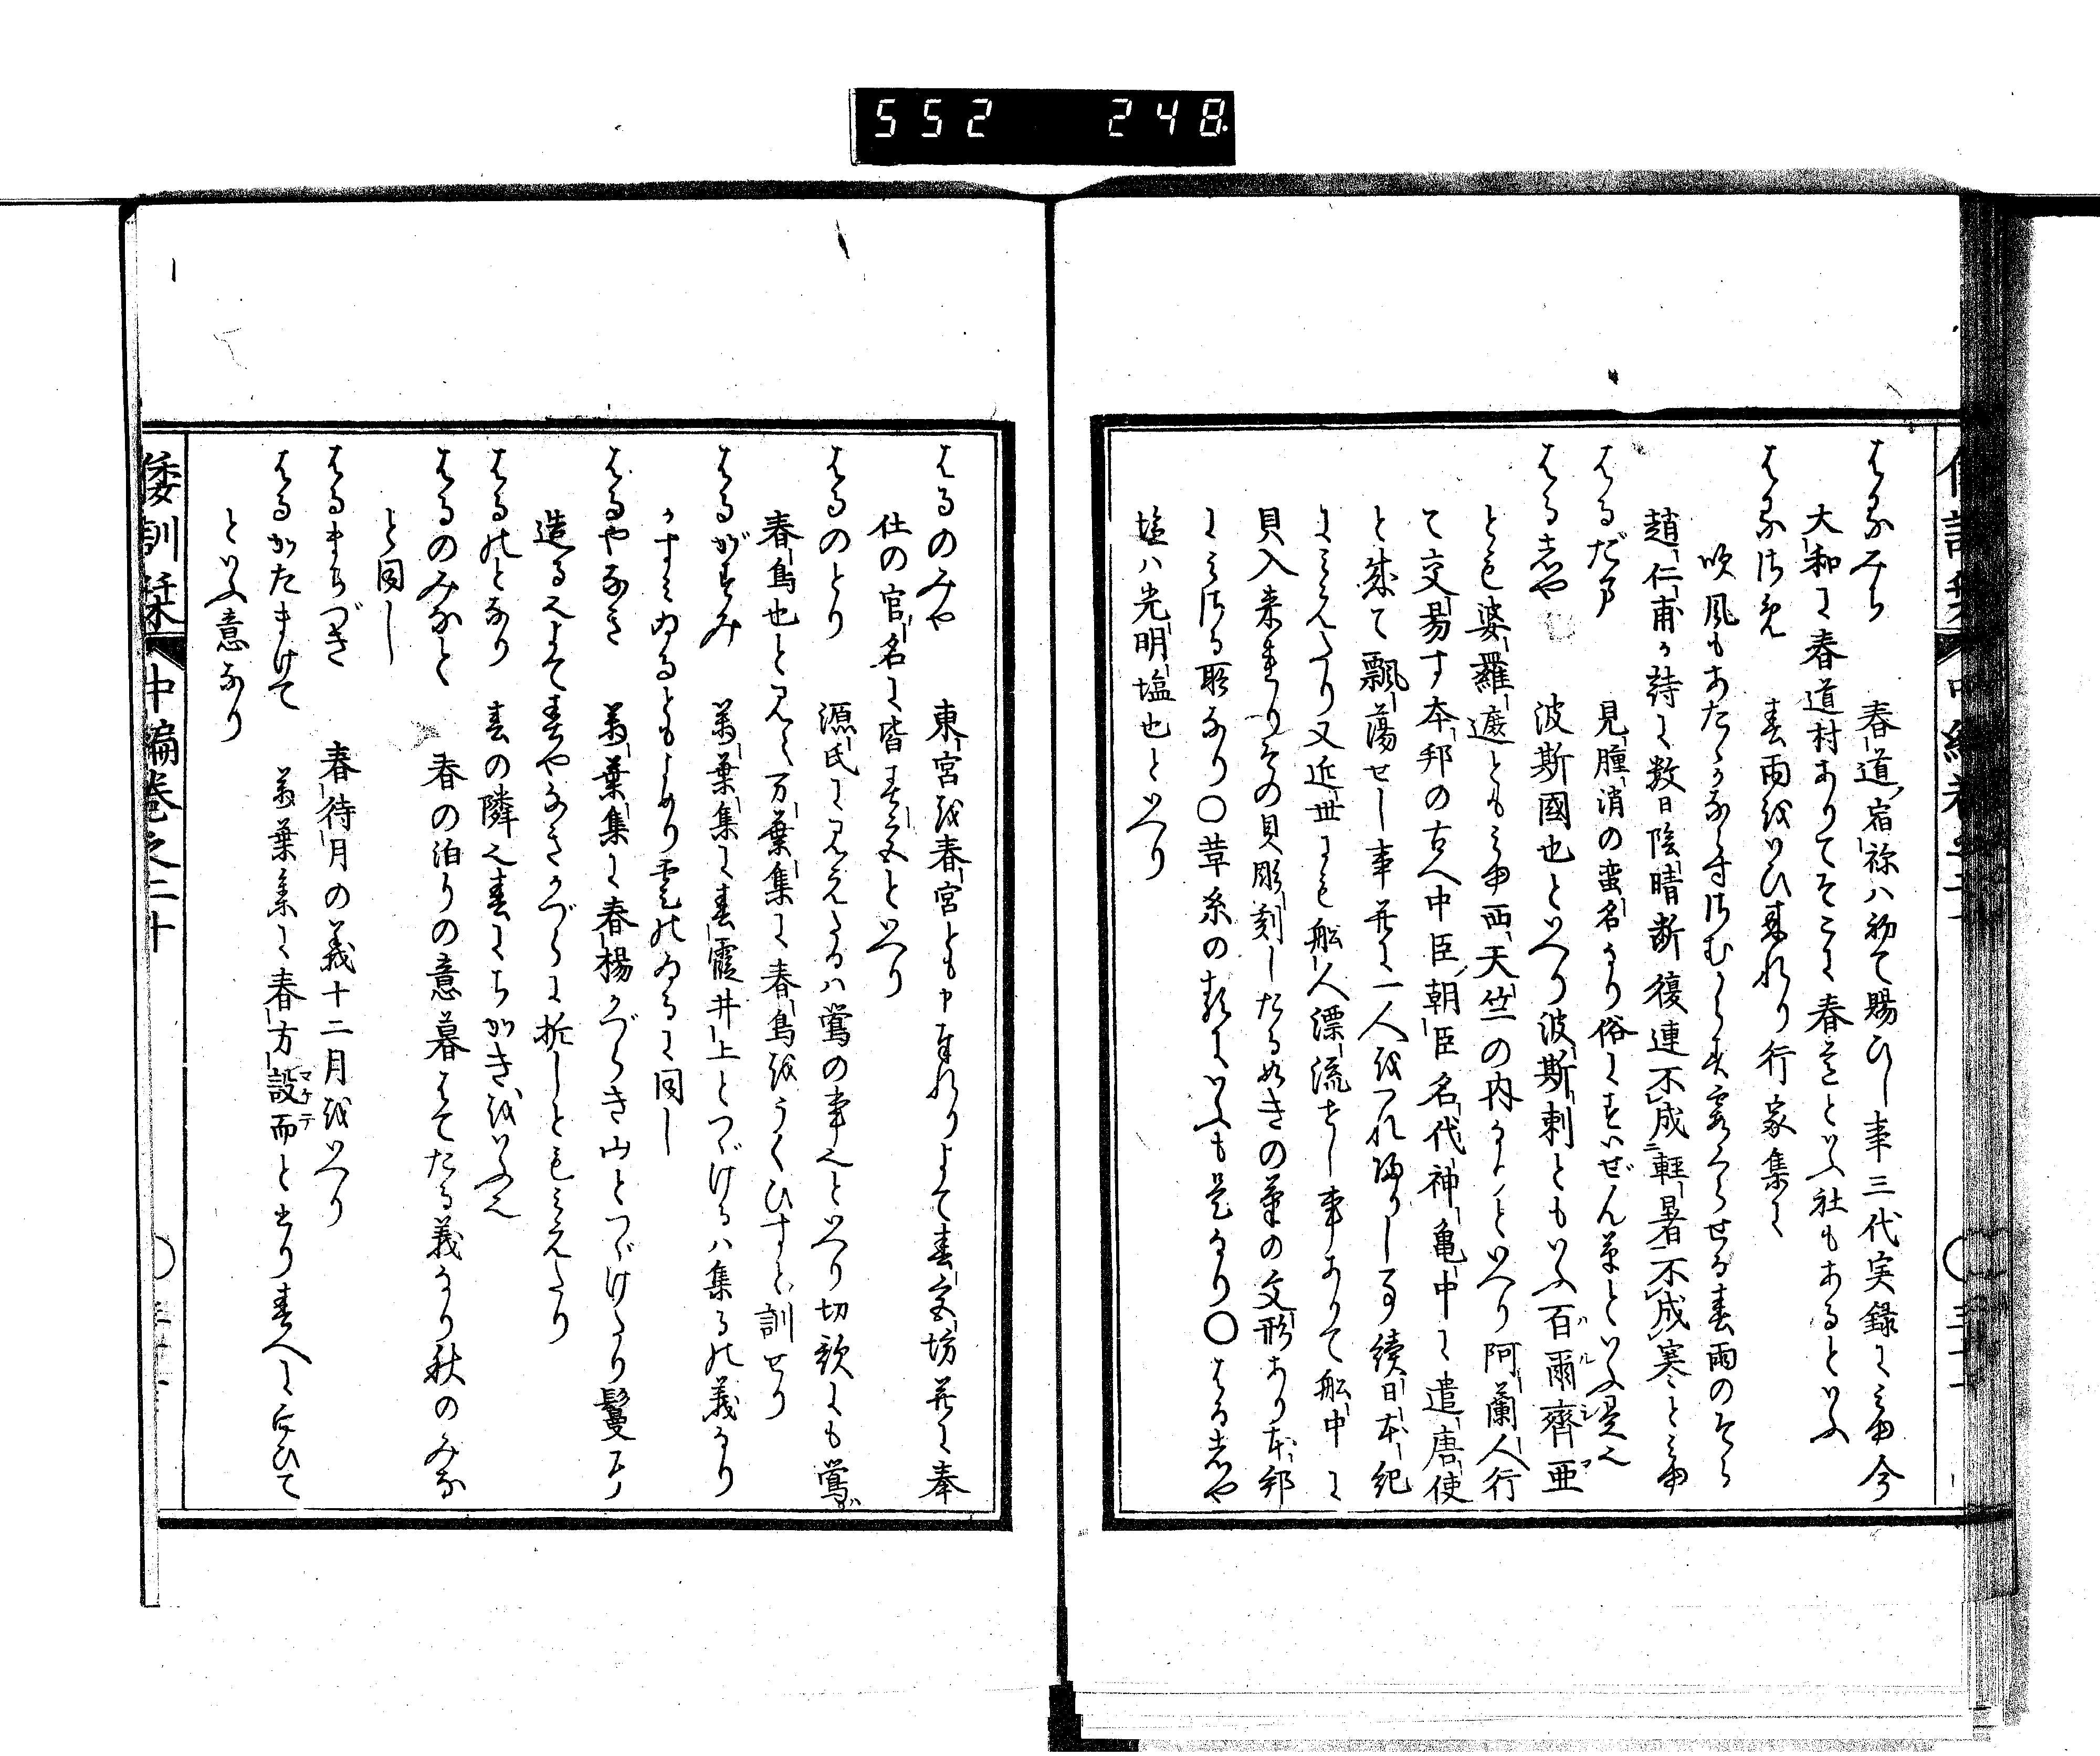 552 248
はるみち 春道宿祢ハ初て賜ひし事三代実録に見ゆ今
大和に春道村ありてそこに春道といふ社もあるといふ
はるさめ 春雨をいひ来れり行家集に
吹風もあたゝかならずさむからず霧くらせる春雨のそら
趙仁甫か詩に数日陰晴断復連不成軽暑不成寒と見ゆ
はるだま 見腫消の蛮名なり俗にすいぜん草といふ是也
はるしや 波斯國也といへり波斯剌ともいふ百爾齊亜
とも婆羅遮とも見ゆ西天竺の内なりといへり阿蘭人行
て交易す本邦の古へ中臣朝臣名代神亀中に遣唐使
と成て飄蕩せし事并に一人をつれ帰りし事續日本紀
に見えたり又近世にも舩人漂流せし事ありて舩中に
貝入来りその貝彫刻したる如きの筆の文形あり本邦
に見さる所なり〇草糸の類にいふも是なり〇はるしや
塩ハ光明塩也といへり
はるのみや 東宮を春宮とも申奉れりよて春宮坊并に奉
仕の官名に皆春宮といへり
はるのとり 源氏に見えたるハ鶯の事也といへり切韻にも鶯ハ
春鳥也と見え万葉集に春鳥をうくひすと訓せり
はるがすみ 萬葉集に春霞井上とつゞけるハ集るの義なり
かすみゐるともよめり雲のゐるに同し
はるやなき 萬葉集に春楊かづらき山とつゞけたり鬘に
造るによて春やなきかづらに折しとも見えたり
はるのとなり 春の隣也春にちかきをいふ也
はるのみなと 春の泊りの意暮はてたる義なり秋のみな
と同し
はるまちづき 春待月の義十二月をいへり
はるかたまけて 萬葉集に春方設而と書り春へに向ひて
といふ意なり
倭訓栞 中編巻之二十